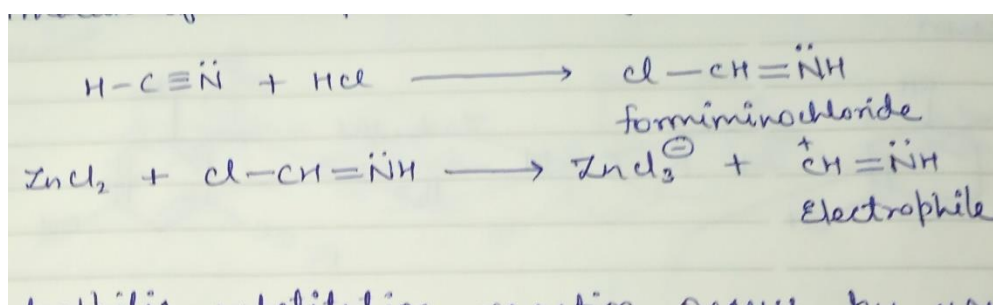 H-C≡N̈ + HCl ⟶ Cl-CH=N̈H
formiminochloride
ZnCl₂ + Cl-CH=N̈H ⟶ ZnCl₃⊖ + C⁺H=N̈H
Electrophile